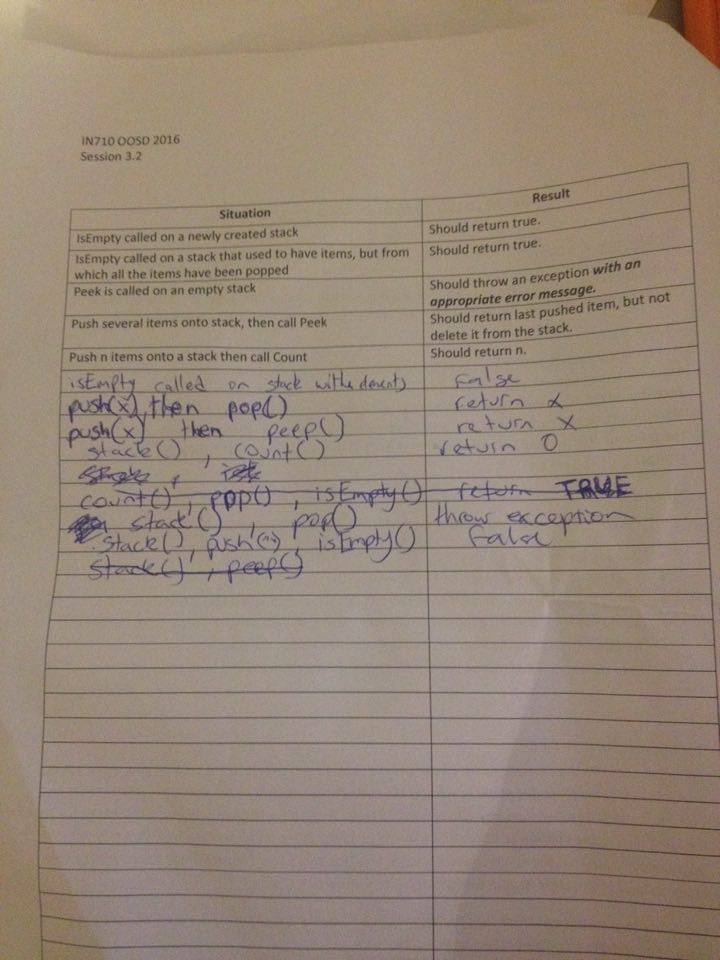 IN710 OOSD 2016
Session 3.2
Situation Result
IsEmpty called on a newly created stack Should return true.
IsEmpty called on a stack that used to have items, but from Should return true.
which all the items have been popped
Peek is called on an empty stack Should throw an exception with an
appropriate error message.
Push several items onto stack, then call Peek Should return last pushed item, but not
delete it from the stack.
Push n items onto a stack then call Count Should return n.
isEmpty called on stack with elements False
push(x), then pop() return x
push(x) then peep() return x
stack() , count() return 0
count() , pop() , isEmpty() return TRUE
stack() , pop() throw exception
stack(), push(), isEmpty() False
stack() , peep()